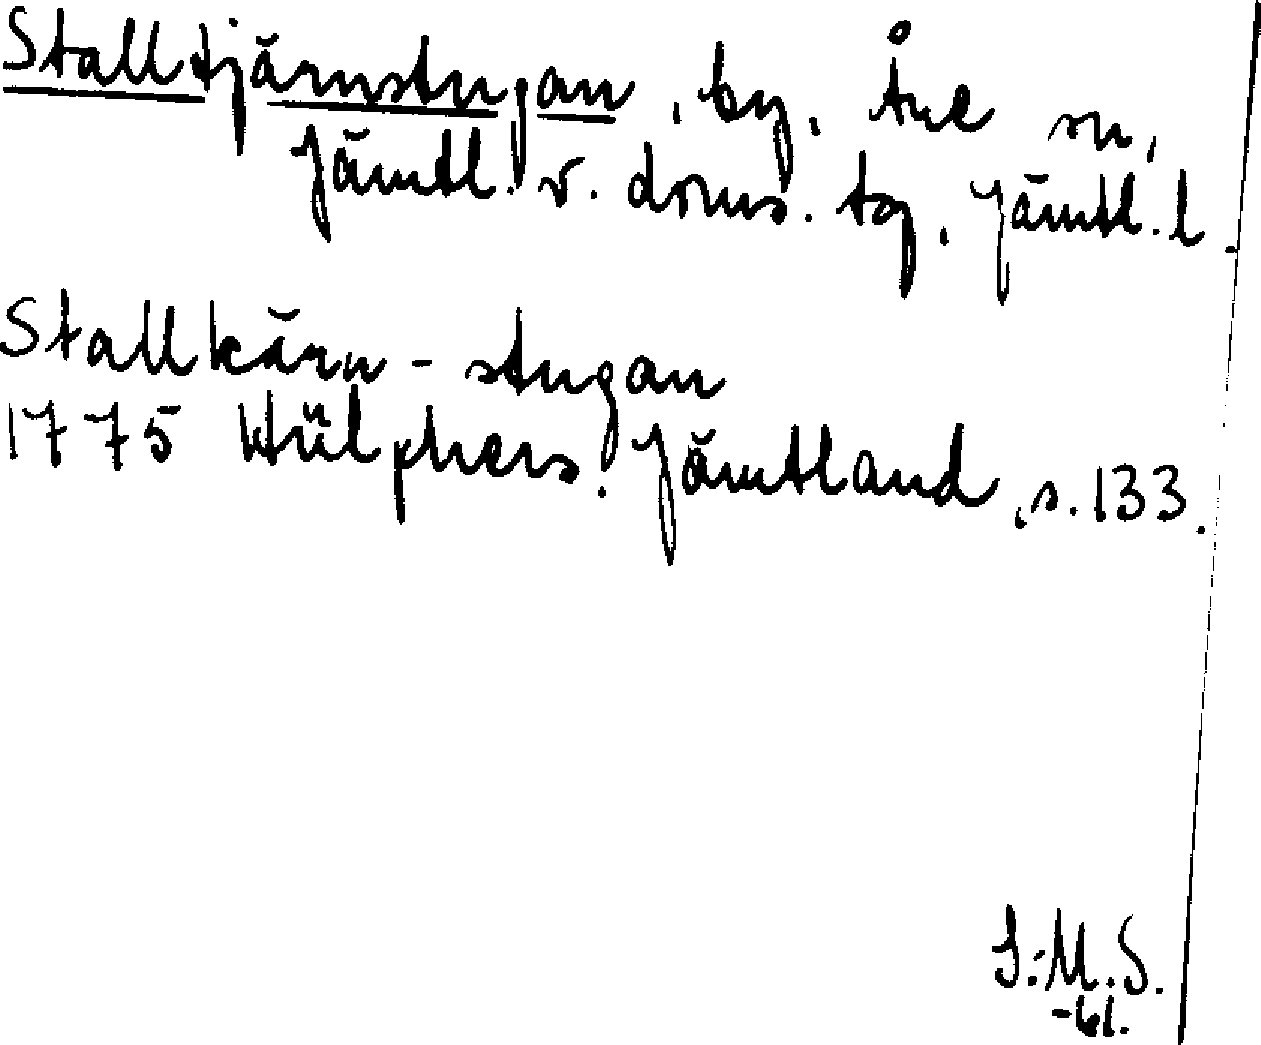 Stalltjärnstugan, by, Åre sn,
Jämtl. v. doms. tg, Jämtl. l.
Stallkärn-stugan
1775 Hülphers. Jämtland, s. 133.
I.-M.S.
-61.